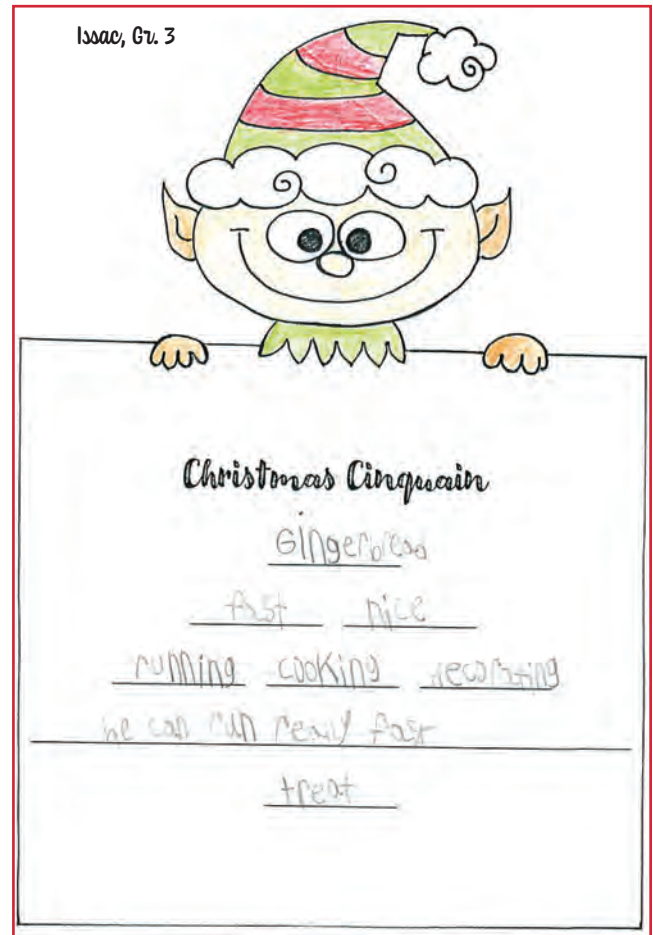 Issac, Gr. 3
Christmas Cinquain
Gingerbread
fast nice
running cooking decorating
he can run really fast
treat